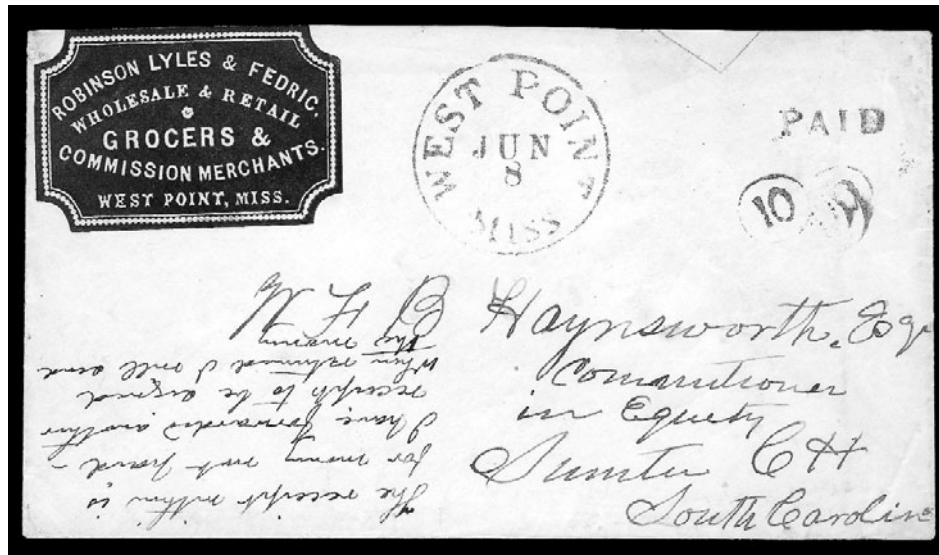 ROBINSON LYLES & FEDRIC.
WHOLESALE & RETAIL
GROCERS &
COMMISSION MERCHANTS.
WEST POINT, MISS.
WEST POINT
JUN
8
MISS
PAID
10
W F B Haynsworth, Esqr
Commitioner
in Equety
Sumter C H
South Carolina
The receipt within is
for money not paid -
I have forwarded another
receipt to be signed
when returned I will send
the money